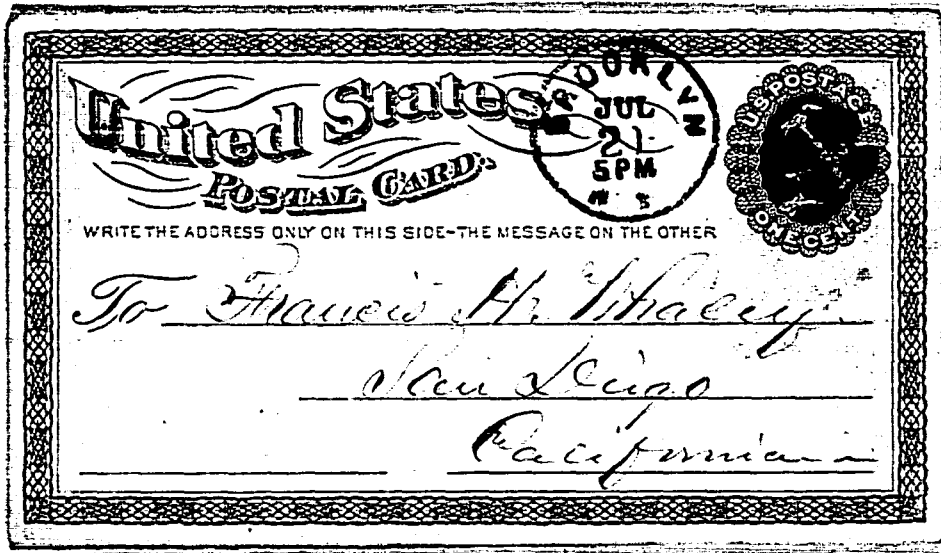 United States
POSTAL CARD.
BROOKLYN
JUL
21
5 PM
U.S. POSTAGE
ONE CENT
WRITE THE ADDRESS ONLY ON THIS SIDE-THE MESSAGE ON THE OTHER
To Francis H. Whaley
San Diego
California